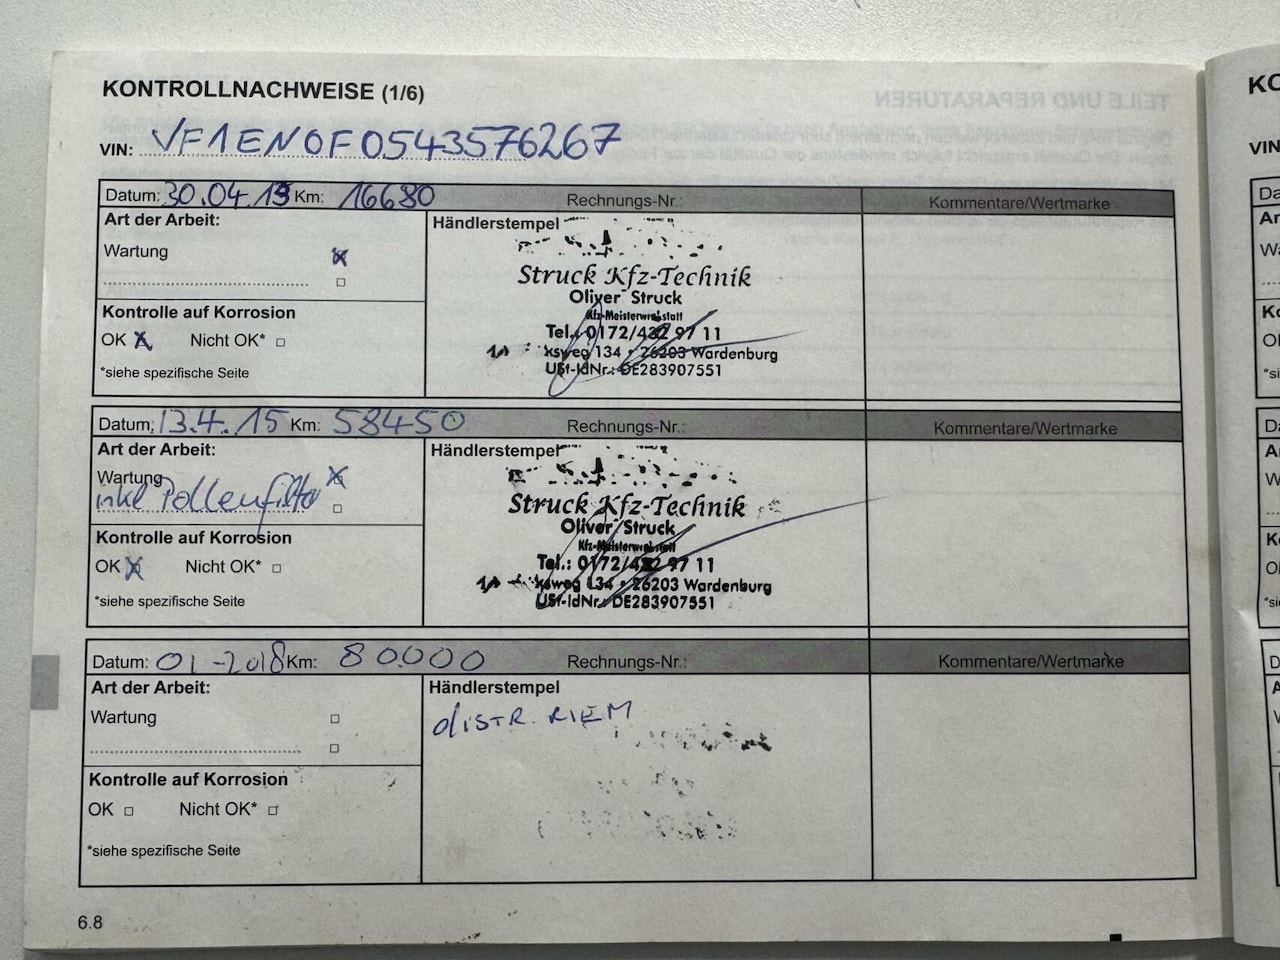 KONTROLLNACHWEISE (1/6)
VIN: VF1EN0F0543576267
Datum: 30.04.13 Km: 16680 Rechnungs-Nr.: Kommentare/Wertmarke
Art der Arbeit: Händlerstempel
Wartung
Struck Kfz-Technik
Oliver Struck
Kfz-Meisterwerkstatt
Kontrolle auf Korrosion
Tel.: 0172/432 97 11
OK Nicht OK*
134 • 26203 Wardenburg
USt-IdNr.: DE283907551
*siehe spezifische Seite
Datum: 13.4.15 Km: 58450 Rechnungs-Nr.: Kommentare/Wertmarke
Art der Arbeit: Händlerstempel
Wartung
inkl Pollenfilter
Struck Kfz-Technik
Oliver Struck
Kfz-Meisterwerkstatt
Kontrolle auf Korrosion
Tel.: 0172/432 97 11
OK Nicht OK*
134 • 26203 Wardenburg
USt-IdNr.: DE283907551
*siehe spezifische Seite
Datum: 01-2018 Km: 80.000 Rechnungs-Nr.: Kommentare/Wertmarke
Art der Arbeit: Händlerstempel
distr. RIEM
Wartung
Kontrolle auf Korrosion
OK Nicht OK*
*siehe spezifische Seite
6.8
TEILE UND REPARATUREN
VIN